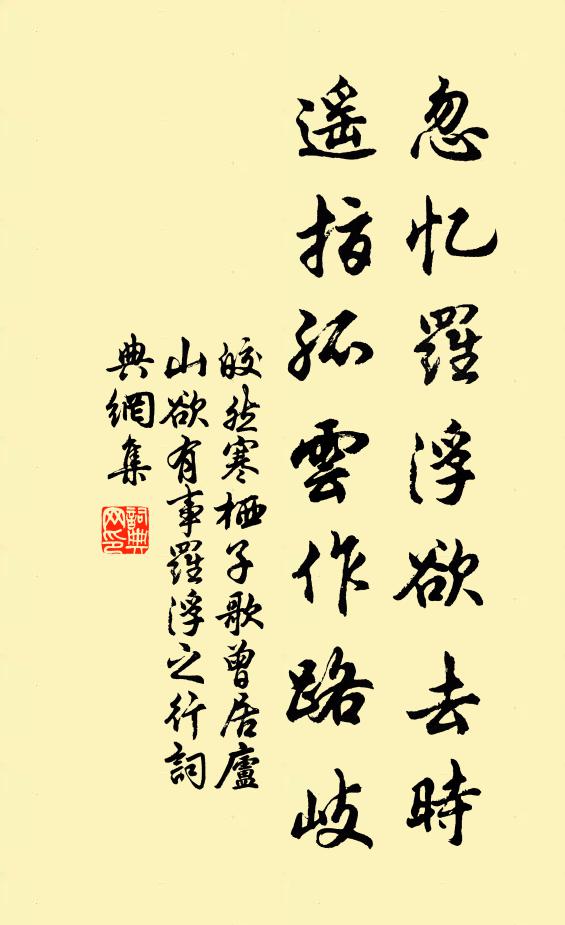 忽忆羅浮欲去時
遥指孤雲作路岐
皎然寒栖子歌曾居廬
山欲有事羅浮之行詞
典網集
詞典
网印